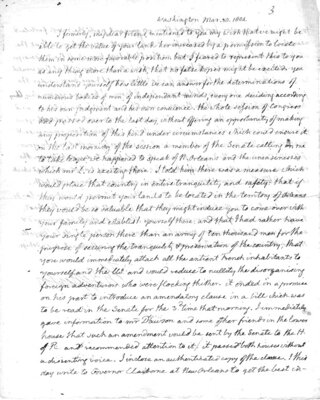 3
Washington Mar. 30. 1804
I formerly, my dear friend, mentioned to you my wish that we might be
able to get the value of your lands here increased by a permission to locate
them in some more favorable position, but I feared to represent this to you
as any thing more than a wish, that no false hopes might be excited. you
understand yourself how little we can answer for the determinations of
numerous bodies of men of independant minds, every one deciding according
to his own judgment and his own conscience. the whole session of Congress
had passed over to the last day, without offering an opportunity of making
any proposition of this kind under circumstances which could ensure it.
on the last morning of the session a member of the Senate calling on me
to take leave, we happened to speak of N. Orleans and the uneasinesses
which mr L. is exciting there. I told him there was a measure which
would place that country in entire tranquility and safety: that if
they would permit your lands to be located in the territory of Orleans
they would be so valuable that they might induce you to come over with
your family and establish yourself there, and that I had rather have
your single person there than an army of ten thousand men for the
purpose of securing the tranquility & preservation of the country; that
you would immediately attach all the antient French inhabitants to
yourself and the US. and would reduce to nullity the disorganising
foreign adventurers who were flocking thither. it ended in a promise
on his part to introduce an amendatory clause in a bill which was
to be read in the Senate for the 3d time that morning. I immediately
gave information to mr Dawson and some other friends in the lower
house that such an amendment would be sent by the Senate to the H.
of R. and recommended attention to it; it passed both houses without
a dissenting voice. I inclose an authenticated copy of the clause. I this
day write to Governor Claiborne at New Orleans to get the best ca-